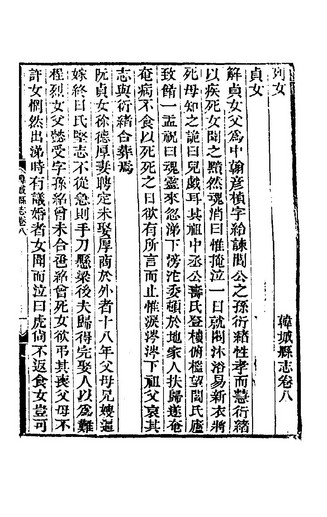 列女 韓城縣志卷八
貞女
解貞女父爲中翰彥楨字給諫閻公之孫衍緒性孝而慧衍緒
以疾死女聞之黯然魂消曰惟掩泣一日就閤沐浴易新衣將
死母知之詭曰兒戲耳其祖中丞公喪氏登樓俯檻望閻氏廬
致餚一盂祝曰魂靈來忽涕下滂沱委頓於地家人扶歸遂奄
奄病不食以死死之日欲有所言而止惟淚涔涔下祖父哀其
志與衍緒合葬焉
阮貞女徐德厚妻聘定未娶厚商於外者十八年父母兄嫂逼
嫁終曰氏堅志不從急則手刀懸梁後夫歸得完娶人以爲難
程烈女父瑩受字孫紹曾未合卺紹曾死女欲弔其喪父母不
許女惻然出涕時有議婚者女聞而泣曰虎倘不返食女豈可
韓城縣志卷八